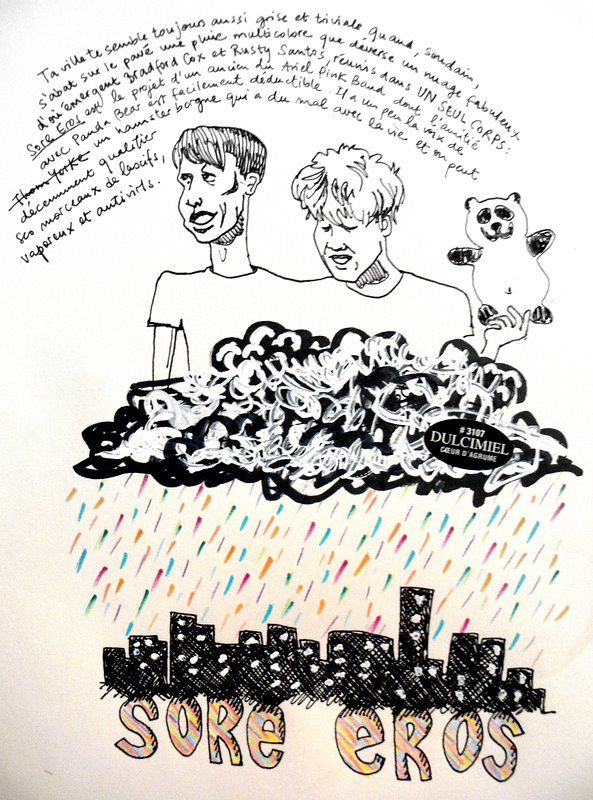 Ta ville te semble toujours aussi grise et triviale quand, soudain,
s'abat sur le pavé une pluie multicolore que déverse un nuage fabuleux
d'où émergent Bradford Cox et Rusty Santos, réunis dans UN SEUL CORPS:
Sore Eros est le projet d'un ancien du Ariel Pink Band dont l'amitié
avec Panda Bear est facilement déductible. Il a un peu la voix de
Thom Yorke un hamster borgne qui a du mal avec la vie et on peut
décemment qualifier
ses morceaux de lascifs,
vaporeux et antivirls.
# 3107
DULCIMIEL
CŒUR D'AGRUME
SORE EROS